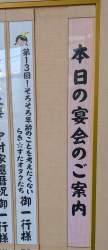 本日の宴会のご案内
第13回！そろそろ年齢のことも考えたくない
らき☆すたオタクたち 御一行様
御一行様